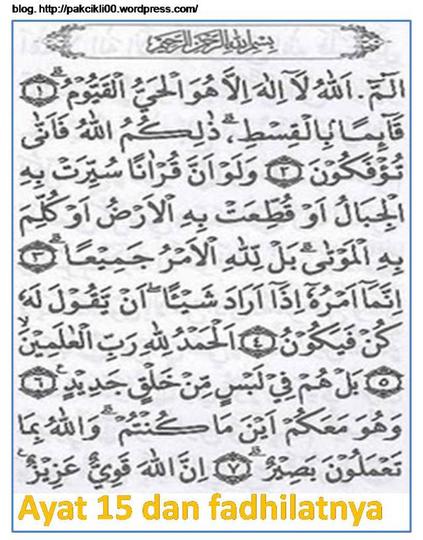 blog. http://pakcikli00.wordpress.com/
بِسْمِ اللهِ الرَّحْمٰنِ الرَّحِيْمِ
الٓمّٓ . اَللهُ لَآ اِلٰهَ اِلَّا هُوَ الْحَيُّ الْقَيُّوْمُ ۙ ﴿١﴾
قَآئِمًا بِالْقِسْطِ ۗ ذٰلِكُمُ اللهُ فَاَنّٰى
تُؤْفَكُوْنَ ﴿٢﴾ وَلَوْ اَنَّ قُرْاٰنًا سُيِّرَتْ بِهِ
الْجِبَالُ اَوْ قُطِّعَتْ بِهِ الْاَرْضُ اَوْ كُلِّمَ
بِهِ الْمَوْتٰى ۗ بَلْ لِلّٰهِ الْاَمْرُ جَمِيْعًا ۗ ﴿٣﴾
اِنَّمَآ اَمْرُهٗٓ اِذَآ اَرَادَ شَيْئًا ۙ اَنْ يَقُوْلَ لَهٗ
كُنْ فَيَكُوْنُ ﴿٤﴾ اَلْحَمْدُ لِلّٰهِ رَبِّ الْعٰلَمِيْنَ ۙ
﴿٥﴾ بَلْ هُمْ فِيْ لَبْسٍ مِّنْ خَلْقٍ جَدِيْدٍ ۚ ﴿٦﴾
وَهُوَ مَعَكُمْ اَيْنَ مَا كُنْتُمْ ۗ وَاللهُ بِمَا
تَعْمَلُوْنَ بَصِيْرٌ ۗ ﴿٧﴾ اِنَّ اللهَ قَوِيٌّ عَزِيْزٌ ۚ
Ayat 15 dan fadhilatnya